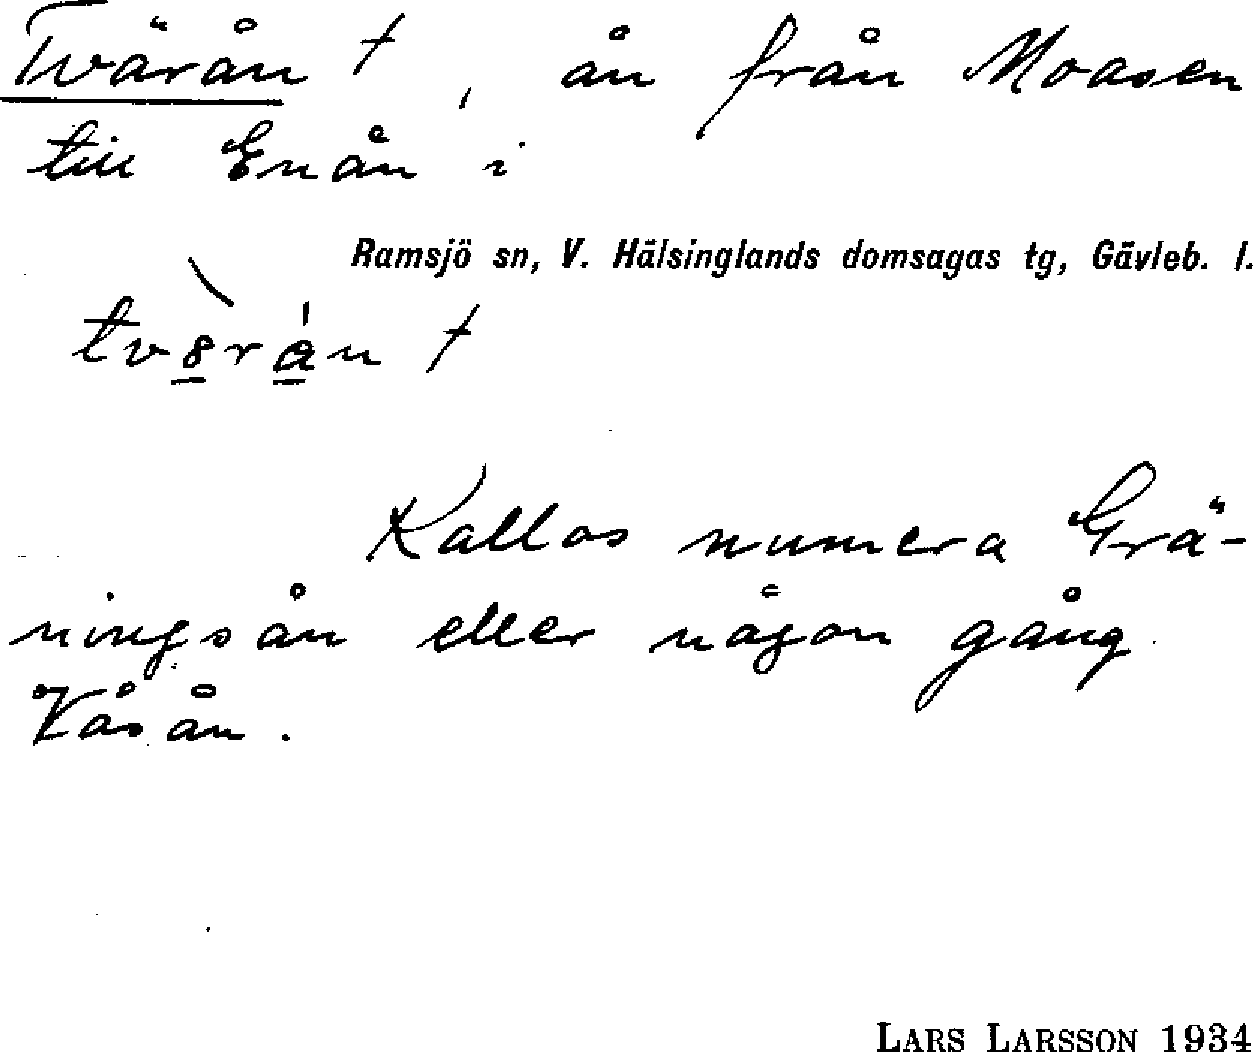 Tvärån †, ån från Moasen
till Enån i
Ramsjö sn, V. Hälsinglands domsagas tg, Gävleb. l.
†
Kallas numera Grä-
ningsån eller någon gång
Våsån.
LARS LARSSON 1934